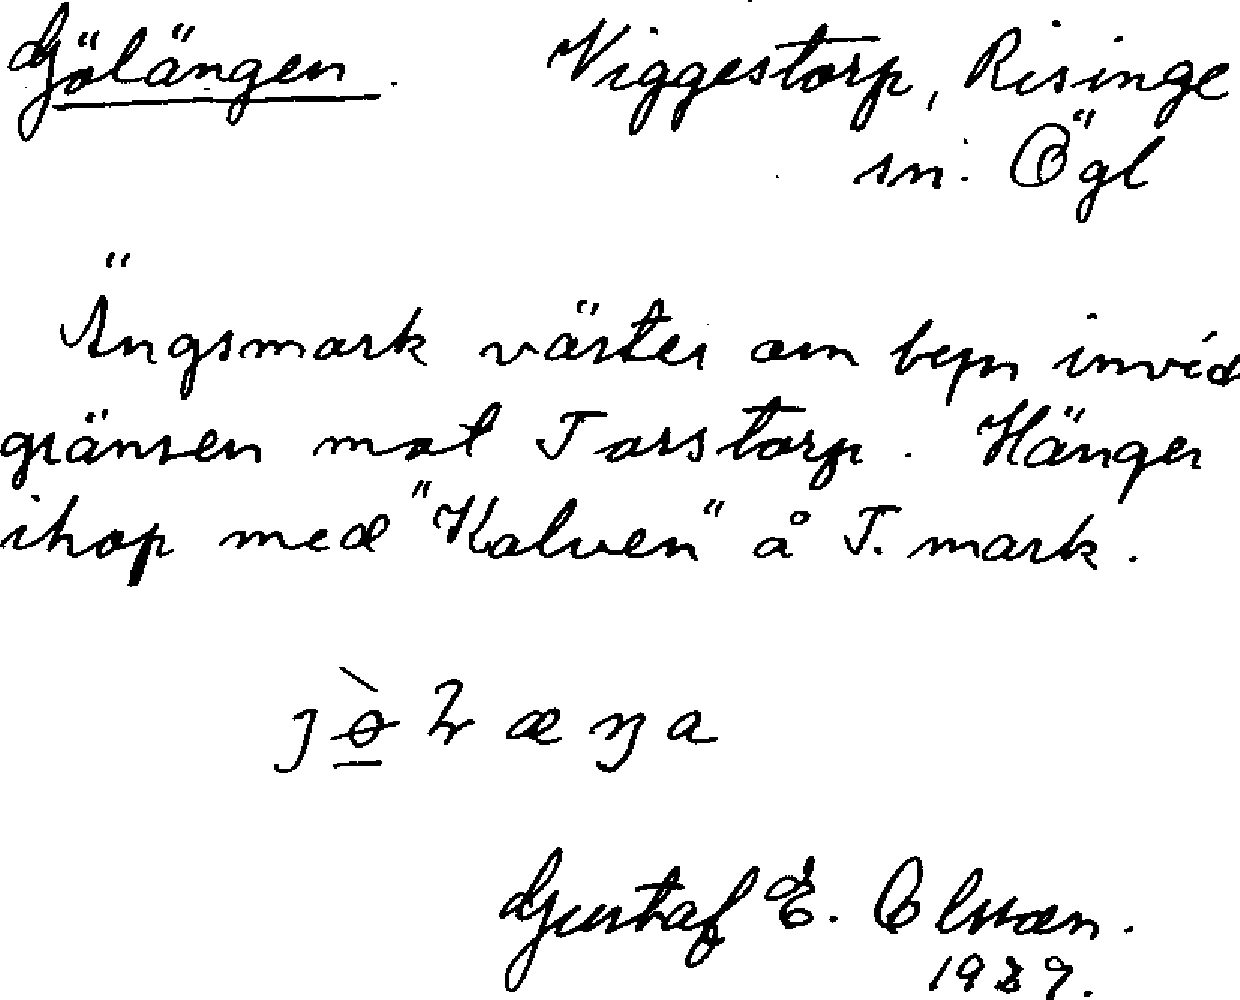 Gölängen. Viggestorp, Risinge
sn. Ögl
Ängsmark väster om byn invid
gränsen mot Torstorp. Hänger
ihop med "Kalven" å T. mark.
Gustaf E. Olsson.